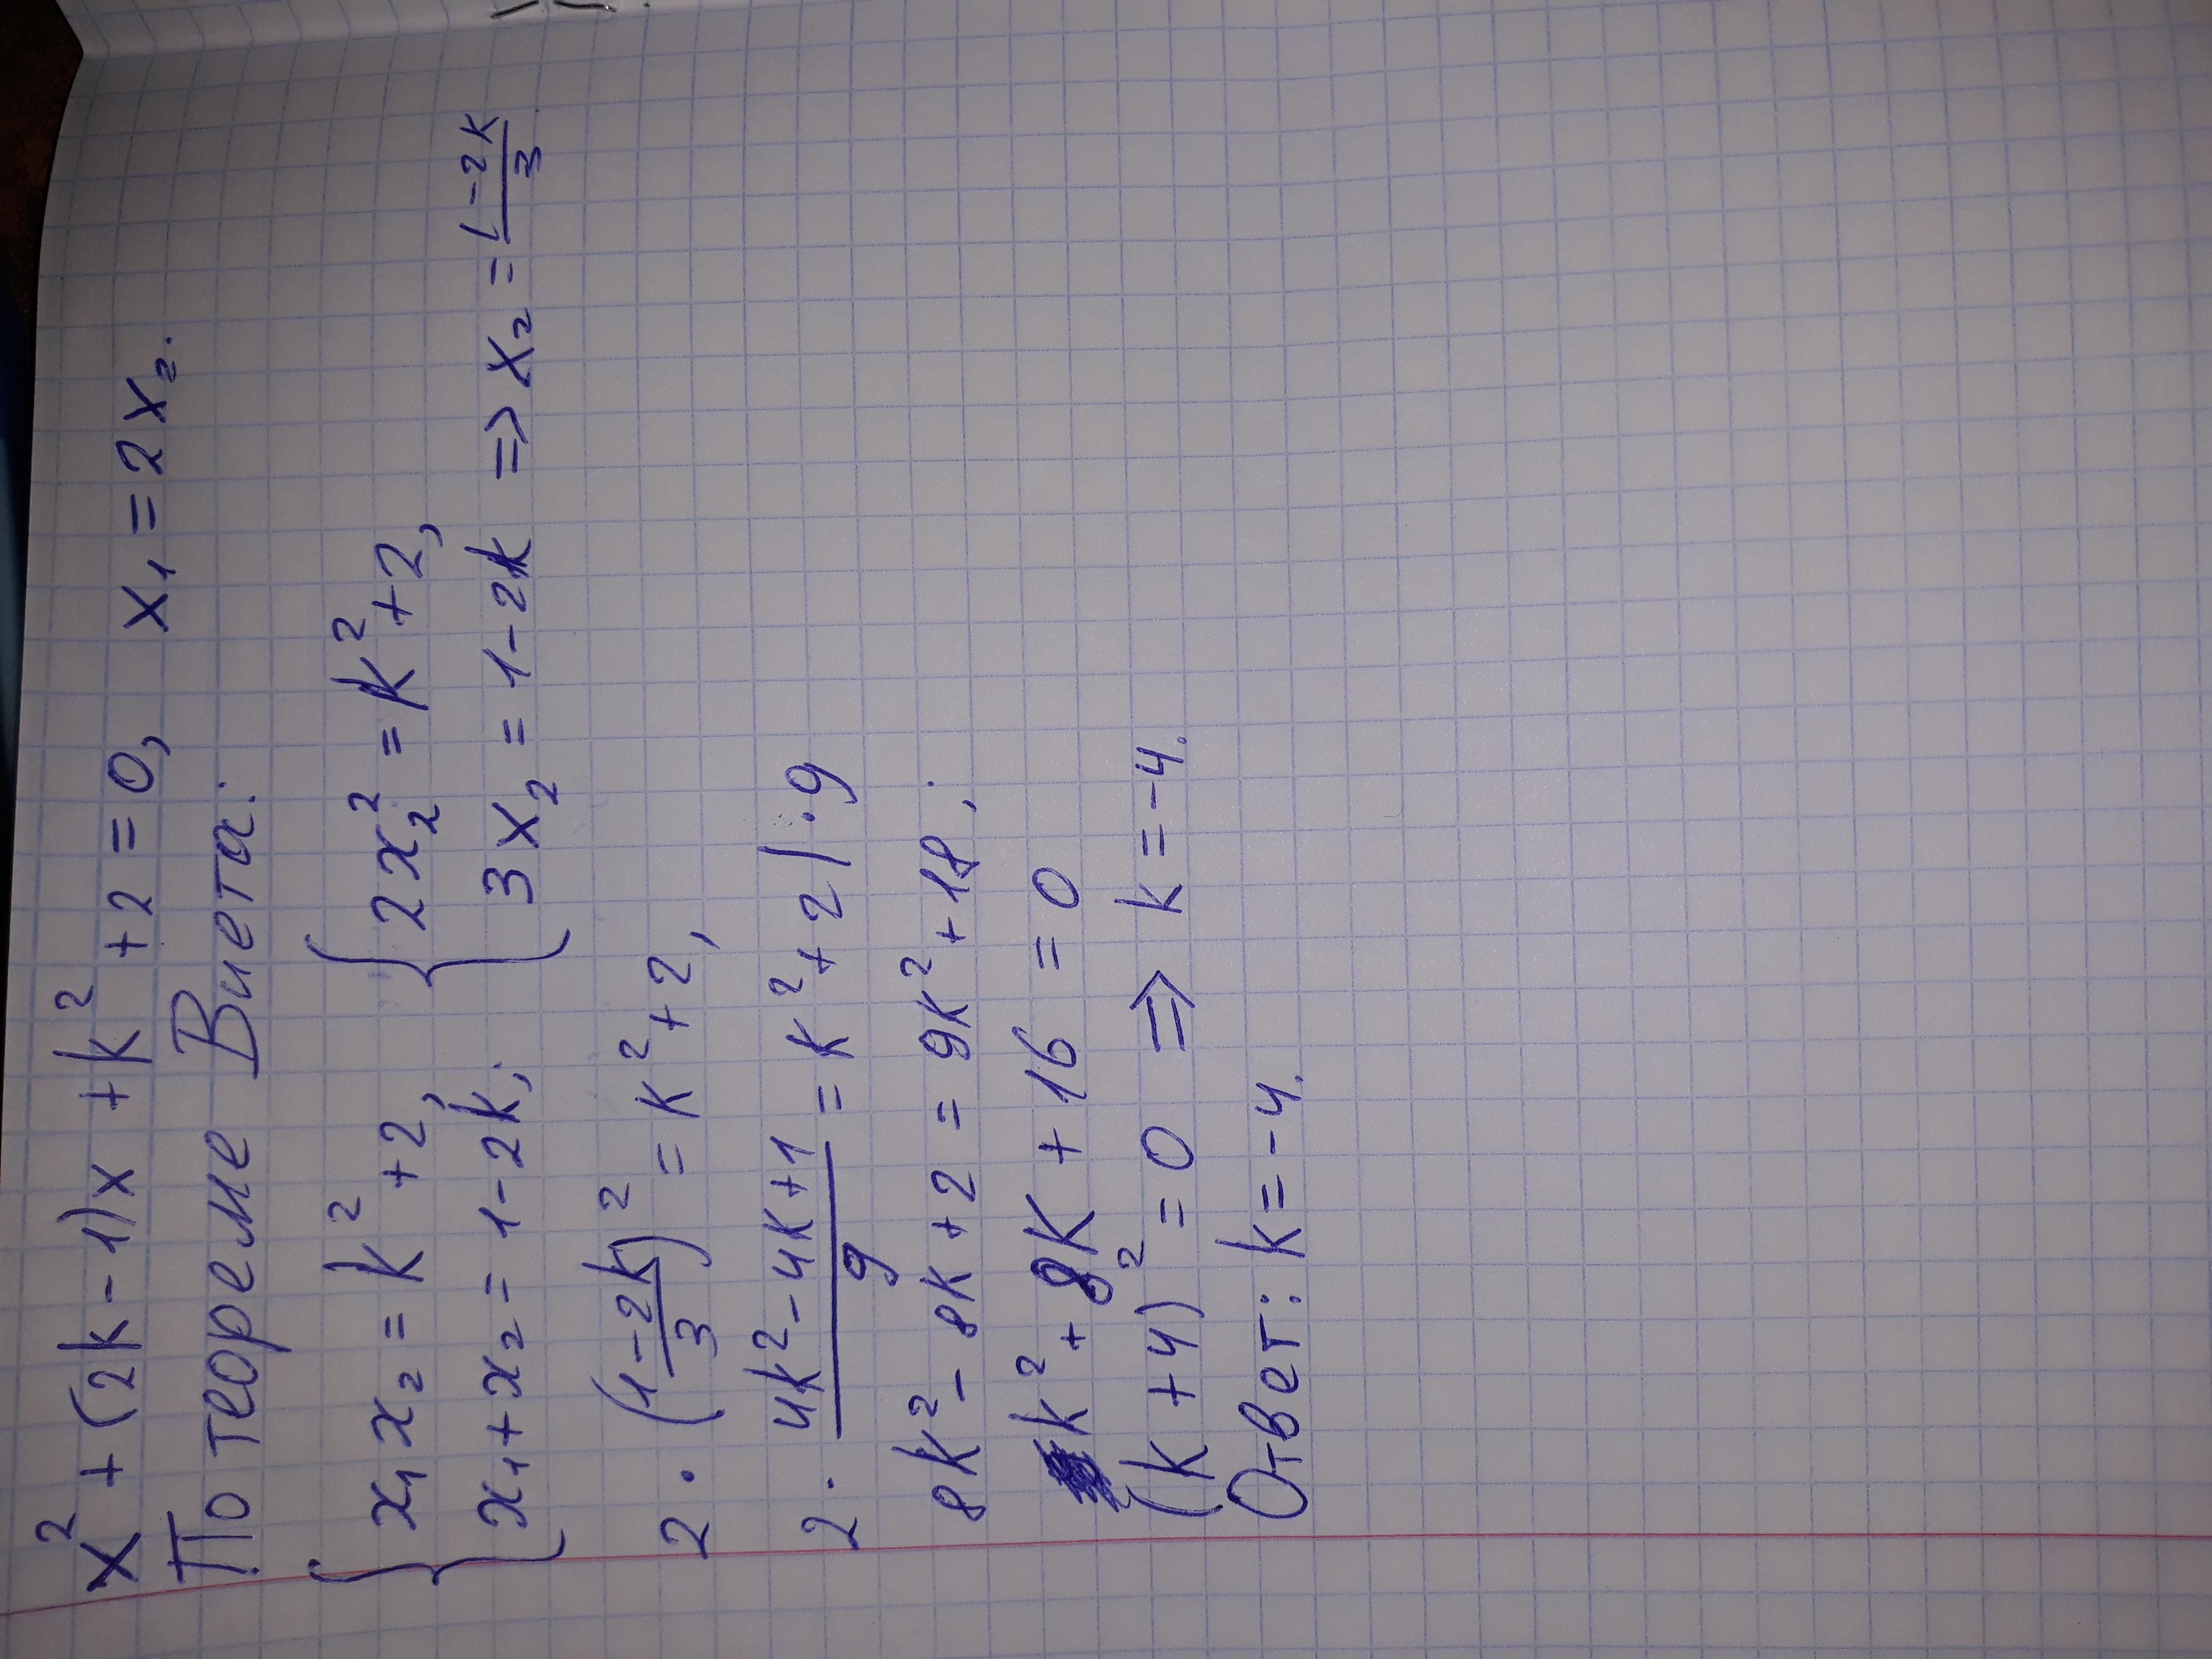 x² + (2k - 1)x + k² + 2 = 0, x₁ = 2x₂.
По теореме Виета:
{ x₁x₂ = k² + 2, { 2x₂² = k² + 2,
{ x₁ + x₂ = 1 - 2k; { 3x₂ = 1 - 2k => x₂ = (1 - 2k)/3
2 · ((1 - 2k)/3)² = k² + 2,
2 · (4k² - 4k + 1)/9 = k² + 2 | · 9
8k² - 8k + 2 = 9k² + 18;
k² + 8k + 16 = 0
(k + 4)² = 0 => k = -4.
Ответ: k = -4.